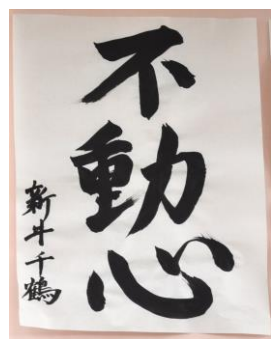 不動心
新井千鶴